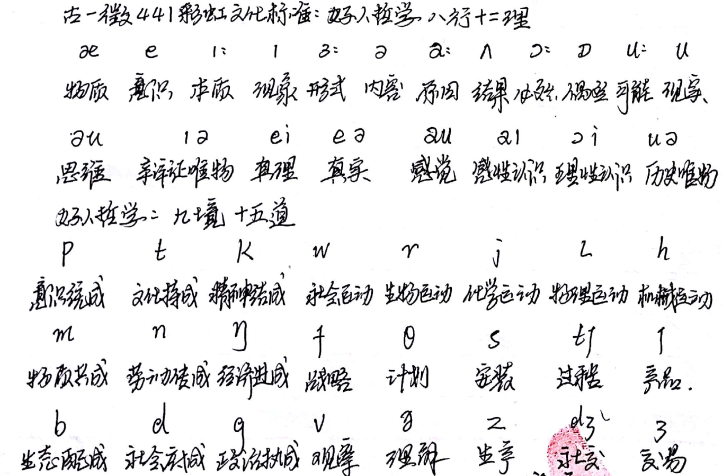 古一徵441彩虹文化标准:好人哲学 八行十二理
æ e ı: ı ɜ: ə ɑ: ʌ ɔ: ɒ u: u
物质 意识 本质 现象 形式 内容 原因 结果 必然 偶然 可能 现实
əu ıə ei eə au aı ɔi uə
思维 辩证唯物 真理 真实 感觉 感性认识 理性认识 历史唯物
好人哲学二 九境 十五道
p t k w r j L h
意识统成 文化持成 精神结成 社会运动 生物运动 化学运动 物理运动 机械运动
m n ŋ f θ s tʃ ʃ
物质共成 劳动使成 经济进成 战略 计划 安装 过程 产品.
b d g v ð z dʒ ʒ
生态配成 社会序成 政治执成 观察 理解 生产 交易